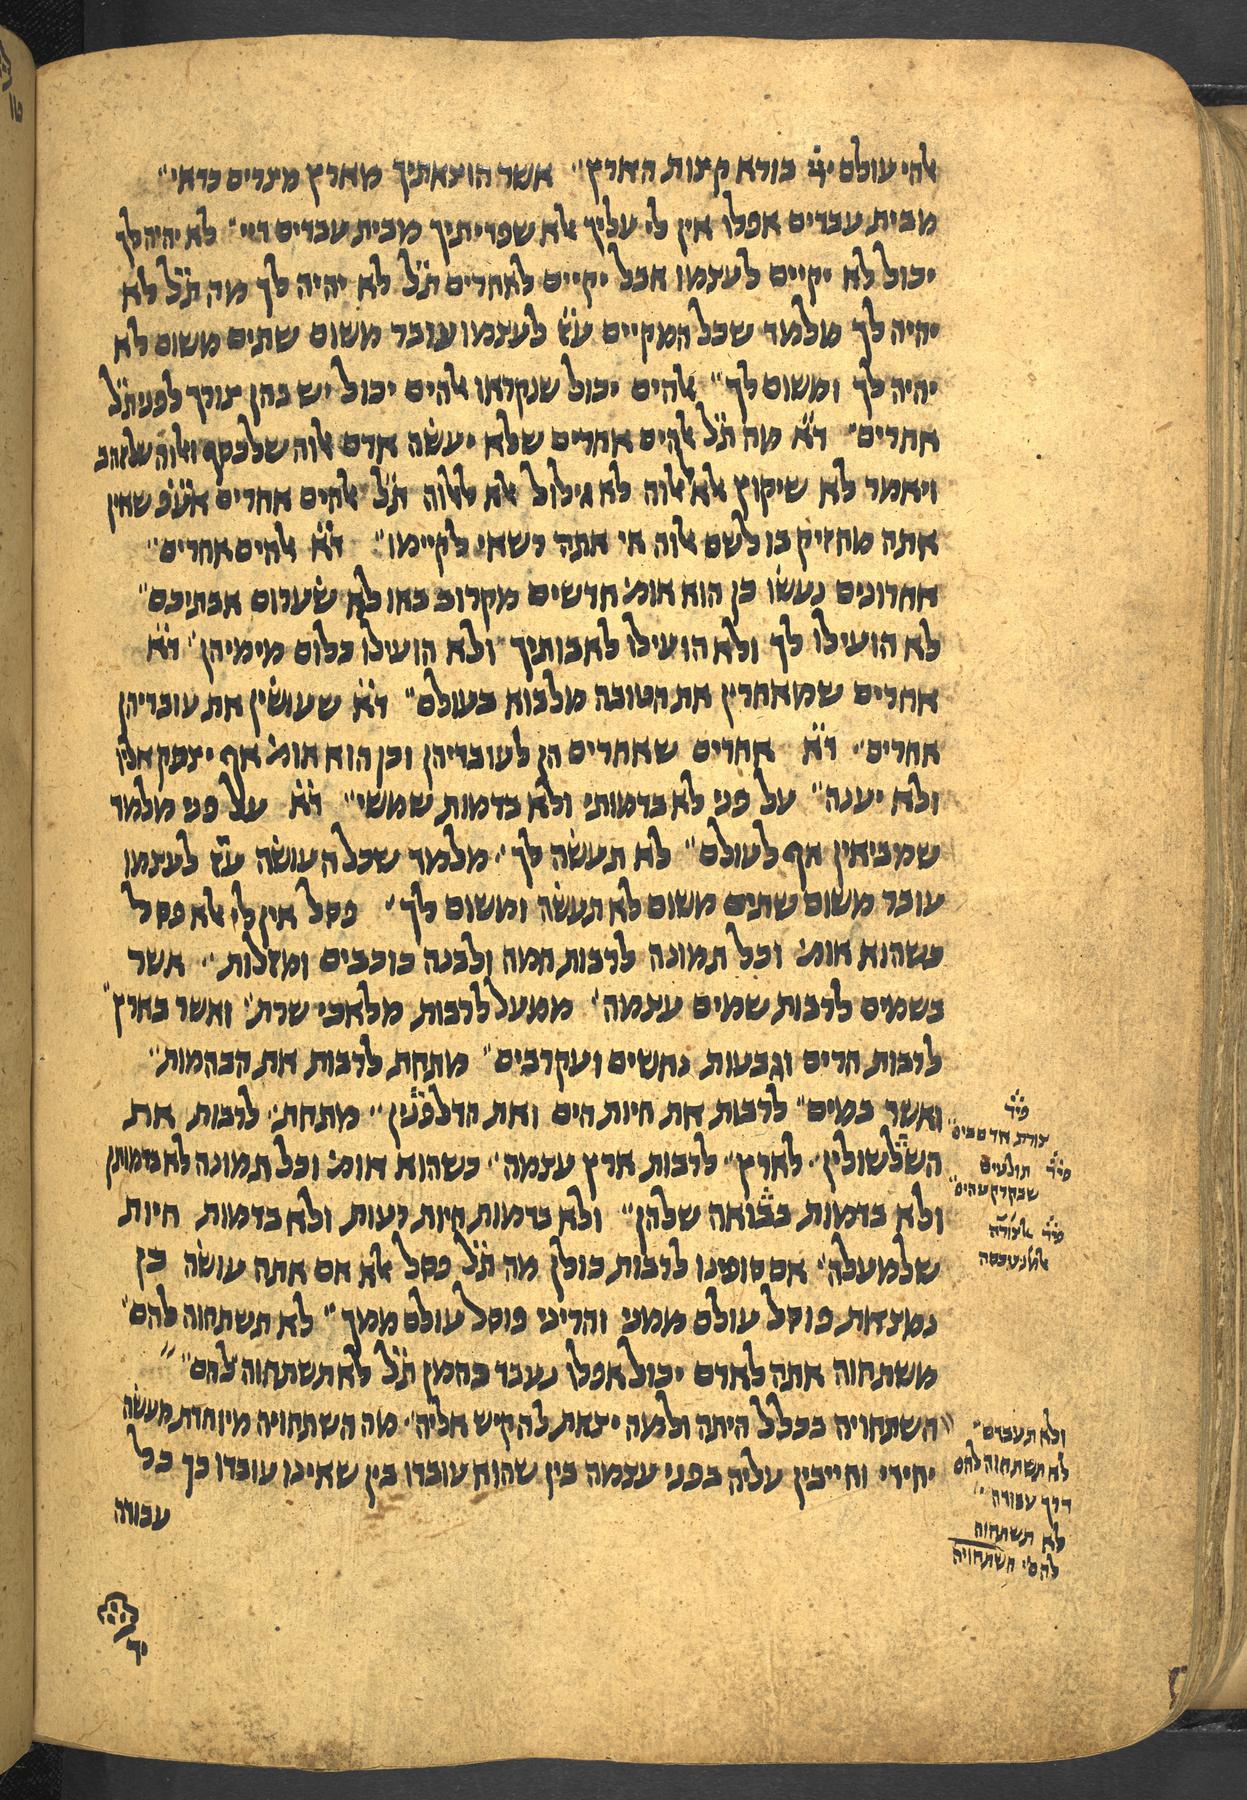 אלהי עולם ייי בורא קצות הארץ״ אשר הוצאתיך מארץ מצרים כדאי״
מבית עבדים אפלו אין לי עליך אלא שפדיתיך מבית עבדים דיי״ לא יהיה לך
יכול לא יקיים לעצמו אבל יקיים לאחרים ת״ל לא יהיה לך מה ת״ל לא
יהיה לך מלמד שכל המקיים ע״ז לעצמו עובר משום שתים משום לא
יהיה לך ומשום לך״ אלהים יכול שנקראו אלהים יכול יש בהן צורך לפני ת״ל
אחרים״ ד״א מה ת״ל אלהים אחרים שלא יעשה אדם אלוה שלכסף ואלוה שלזהב
ויאמר לא שיקוץ אלא אלוה לא גילול אלא אלוה ת״ל אלהים אחרים אע״פ שאין
אתה מחזיק בו לשם אלוה אי אתה רשאי לקיימו״ ד״א אלהים אחרים״
אחרונים נעשו כן הוא אומ׳ חדשים מקרוב באו לא שערום אבתיכם״
לא הועילו לך ולא הועילו לאבותיך ולא הועילו כלום מימיהן׳ ד״א
אחרים שמאחרין את הטובה מלבוא בעולם״ ד״א שעושין את עובדיהן
אחרים״ ד״א אחרים שאחרים הן לעובדיהן וכן הוא אומ׳ אף יצעק אליו
ולא יענה״ על פני לא בדמותי ולא בדמות שמשי״ ד״א על פני מלמד
שמביאין אף לעולם״ לא תעשה לך׳ מלמד שכל העושה ע״ז לעצמו
עובר משום שתים משום לא תעשה ומשום לך׳ פסל אין לי אלא פסל
כשהוא אומ׳ וכל תמונה לרבות חמה ולבנה כוכבים ומזלות״ אשר
בשמים לרבות שמים עצמה׳ ממעל לרבות מלאכי שרת׳ ואשר בארץ״
לרבות הרים וגבעות נחשים ועקרבים״ מתחת לרבות את הבהמות״
ואשר במים״ לרבות את חיות הים ואת הדלפנין״ מתחת׳ לרבות את
השלשולין׳ לארץ׳ לרבות ארץ עצמה׳ כשהוא אומ׳ וכל תמונה לא בדמותן
ולא בדמות בבואה שלהן״ ולא בדמות חיות רעות ולא בדמות חיות
שלמעלה׳ אם סופינו לרבות כולן מה ת״ל פסל אלא אם אתה עושה כן
נמצאת פוסל עולם ממני והריני פוסל עולם ממך״ לא תשתחוה להם״
משתחוה אתה לאדם יכול אפלו נעבד כהמן ת״ל לא תשתחוה להם״
השתחויה בכלל היתה ולמה יצאת להקיש אליה׳ מה השתחויה מיוחדת מעשה
יחידי וחייבין עליה בפני עצמה בין שהוא עובדו בין שאינו עובדו כך כל
עבודה
פי״ד
צורת אדם בים
תולעים
שבקרקע הים
ולא תעבדם
לא תשתחוה להם
דרך עבודה
לא תשתחוה
להם׳ השתחויה
יד